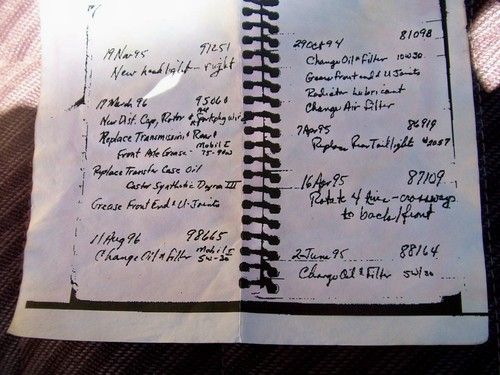 19 Nov 95 91251
New headlight - right
17 March 96 95060
New Dist. Cap, Rotor & sparkplug wires
Replace Transmission, & Rear &
Front Axle Grease - Mobil I 75-90W
Replace Transfer Case Oil
Castor Synthetic Dexron III
Grease Front End & U-Joints
11 Aug 96 98665
Change Oil & Filter Mobil I 5W-30
29 Oct 94 81098
Change Oil & Filter 10W30
Grease Front end & U Joints
Radiator lubricant
Change Air Filter
7 Apr 95 86919
Replace Rear Taillight #2057
16 Apr 95 87109
Rotate 4 tire - crossways
to back/front
2 June 95 88164
Change Oil & Filter 5W/30